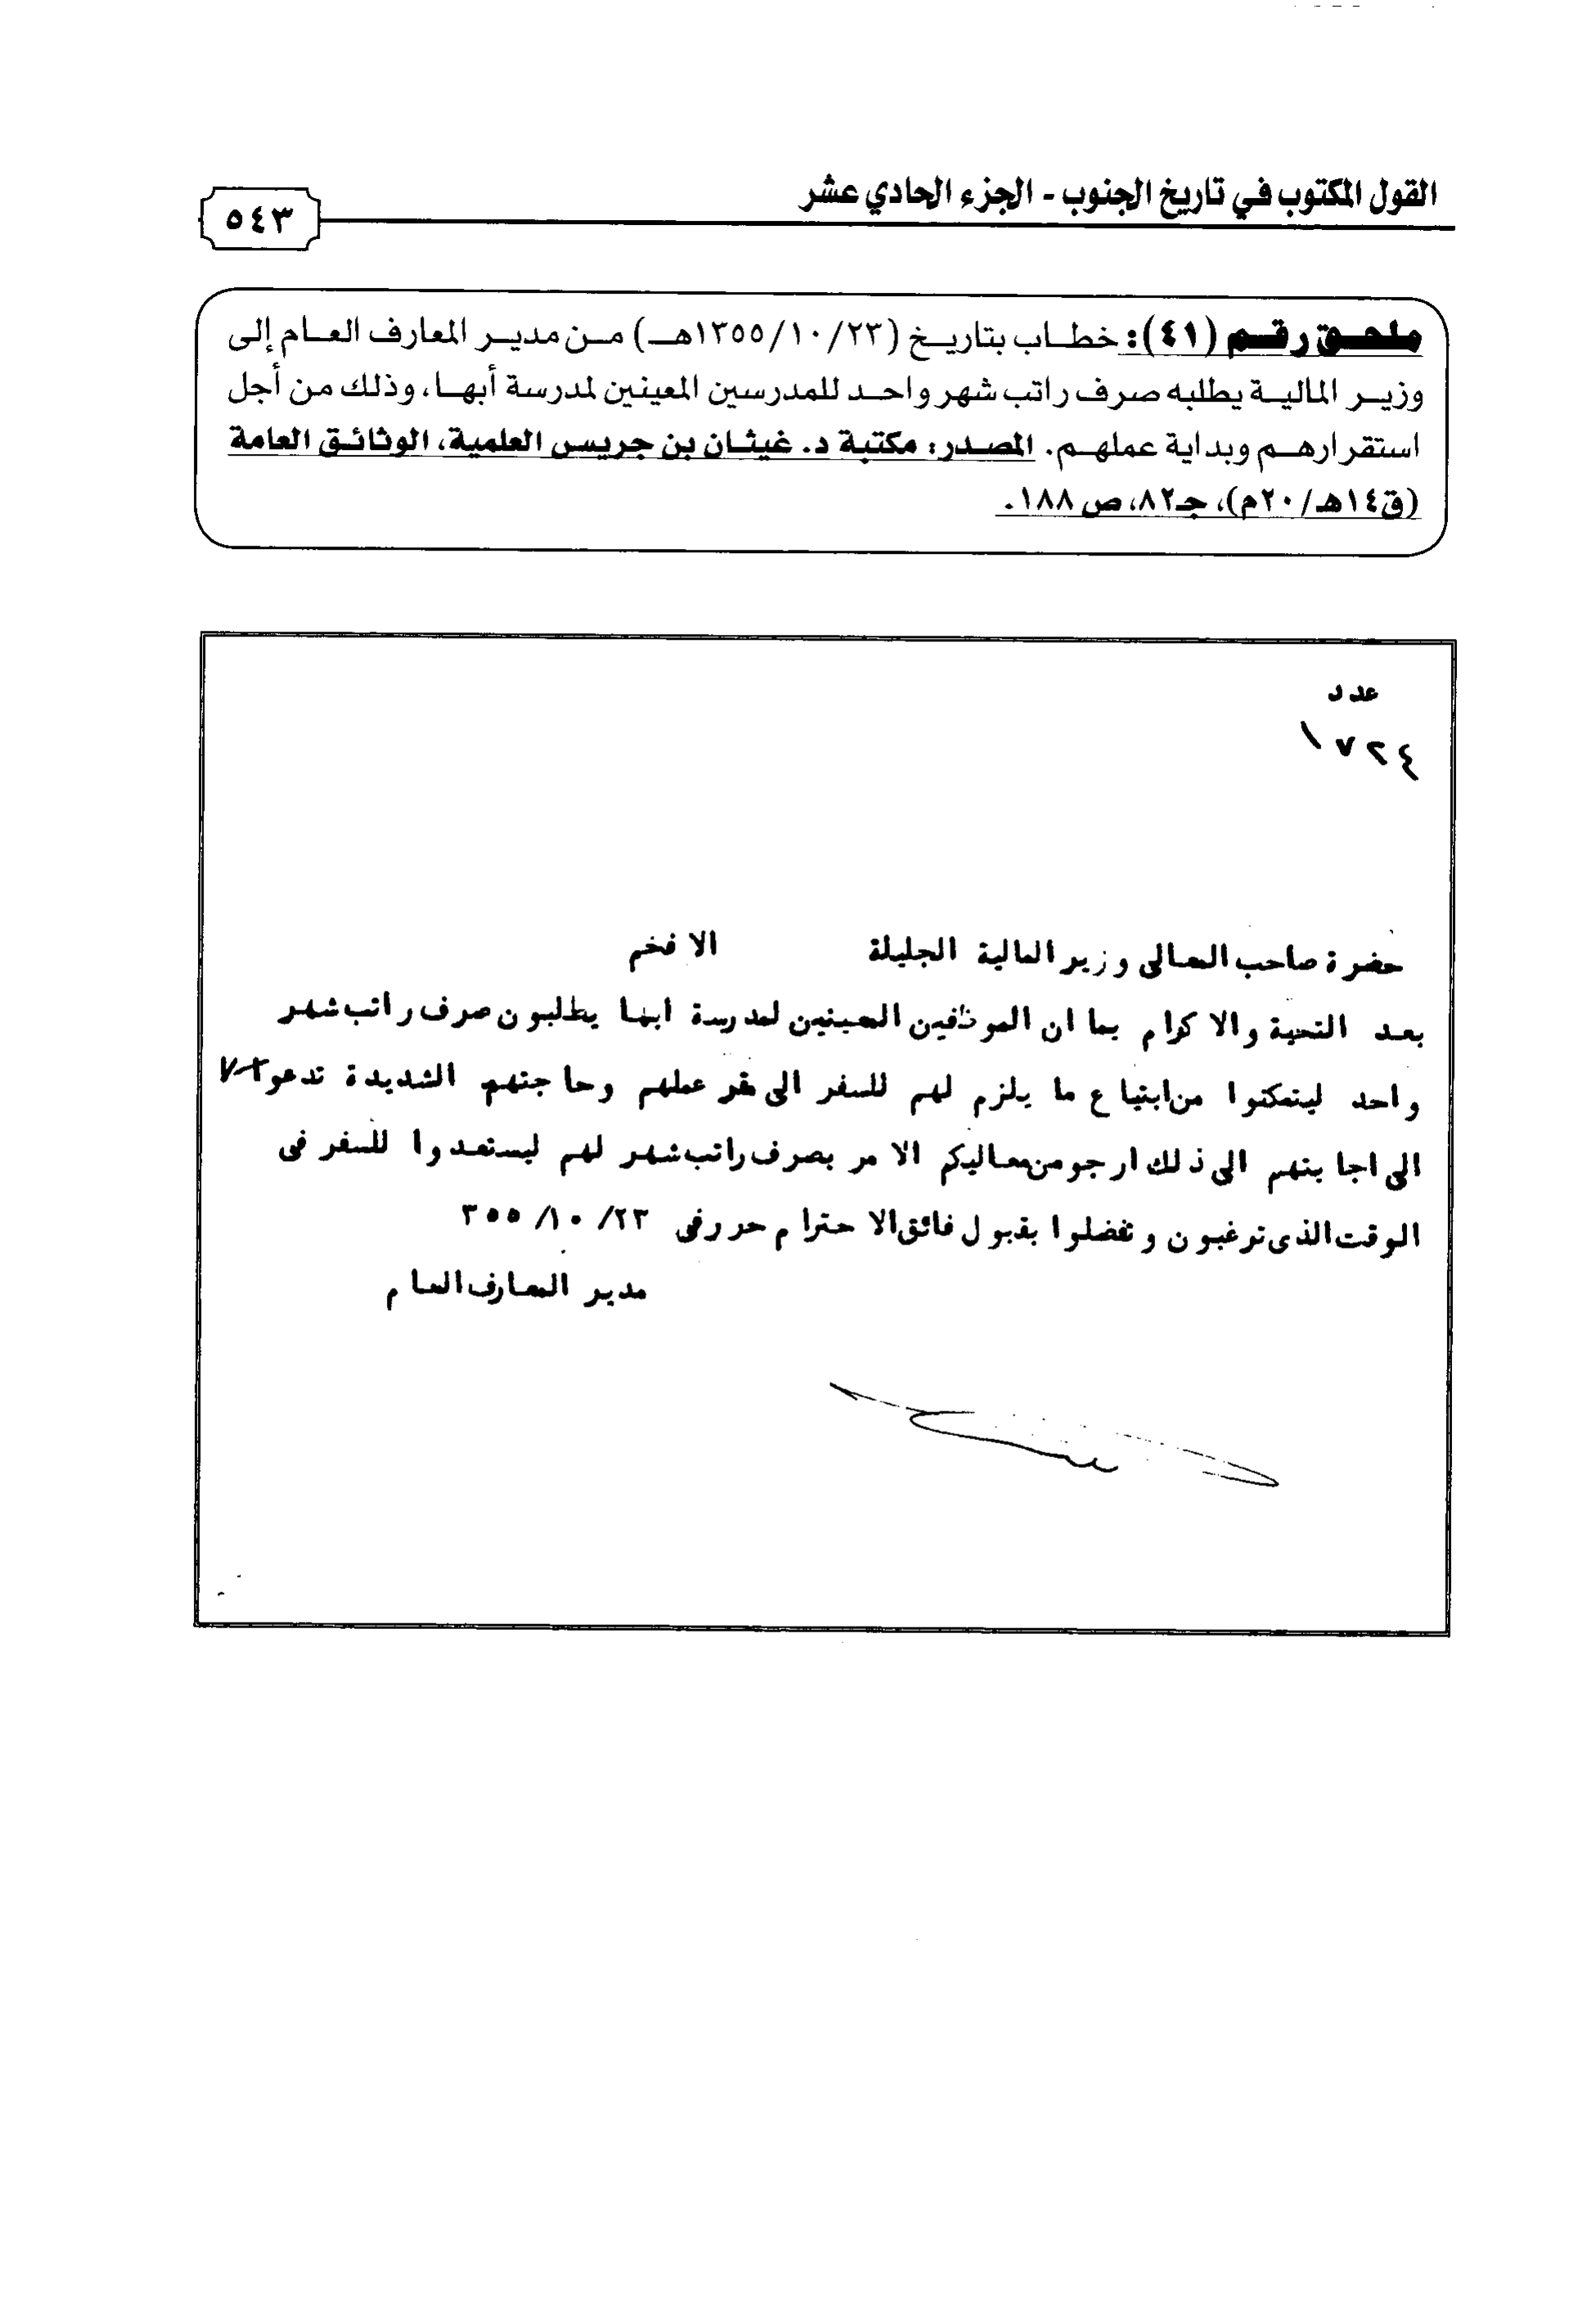 القول المكتوب في تاريخ الجنوب - الجزء الحادي عشر
٥٤٣
ملحق رقم (٤١): خطاب بتاريخ (١٣٥٥/١٠/٢٣هـ) من مدير المعارف العام إلى
وزير المالية يطلبه صرف راتب شهر واحد للمدرسين المعينين لمدرسة أبها، وذلك من أجل
استقرارهم وبداية عملهم. المصدر: مكتبة د. غيثان بن جريس العلمية، الوثائق العامة
(ق١٤هـ/٢٠م)، جـ٨٢، ص ١٨٨.
عدد
١٧٢٤
حضرة صاحب المعالى وزير المالية الجليلة الافخم
بعد التحية والاكرام بما ان الموظفين المعينين لمدرسة ابها يطلبون صرف راتب شهر
واحد ليتمكنوا من ابتياع ما يلزم لهم للسفر الى مقر عملهم وحاجتهم الشديدة تدعو
الى اجابتهم الى ذلك ارجو من معاليكم الامر بصرف راتب شهر لهم ليستعدوا للسفر فى
الوقت الذى ترغبون وتفضلوا بقبول فائق الاحترام حرر فى ٢٣/ ١٠/ ٣٥٥
مدير المعارف العام